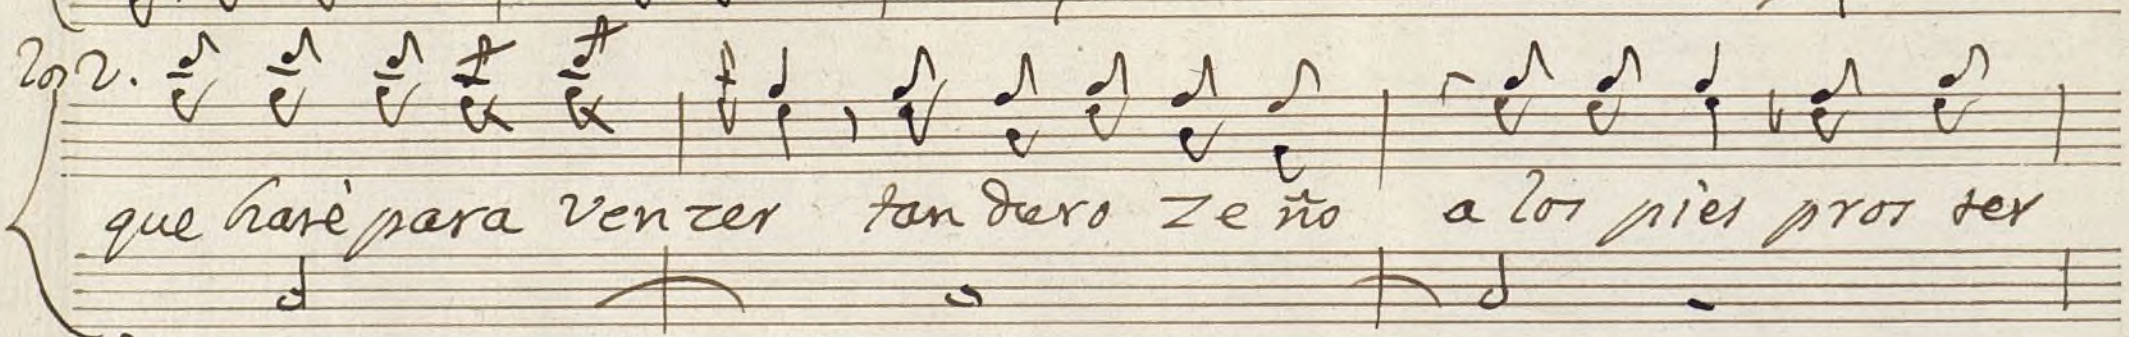 los 2.
que harè para venzer tan duro zeño a los pies pros ter